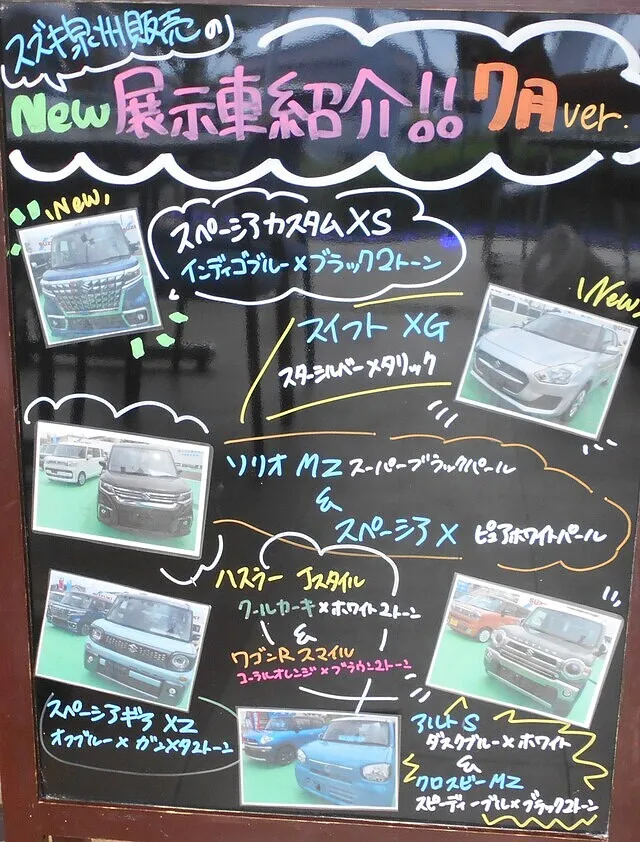 スズキ泉州販売の
New 展示車紹介!! 7月 ver.
New
スペーシアカスタムXS
インディゴブルー×ブラック2トーン
New
スイフト XG
スターシルバーメタリック
ソリオ MZ スーパーブラックパール
&
スペーシア X ピュアホワイトパール
ハスラー Jスタイル
クールカーキ×ホワイト2トーン
&
ワゴンR スマイル
コーラルオレンジ×ブラウン2トーン
スペーシアギア XZ
オフブルー×ガンメタ2トーン
アルト S
ダスクブルー×ホワイト
&
クロスビー MZ
スピーディーブルー×ブラック2トーン